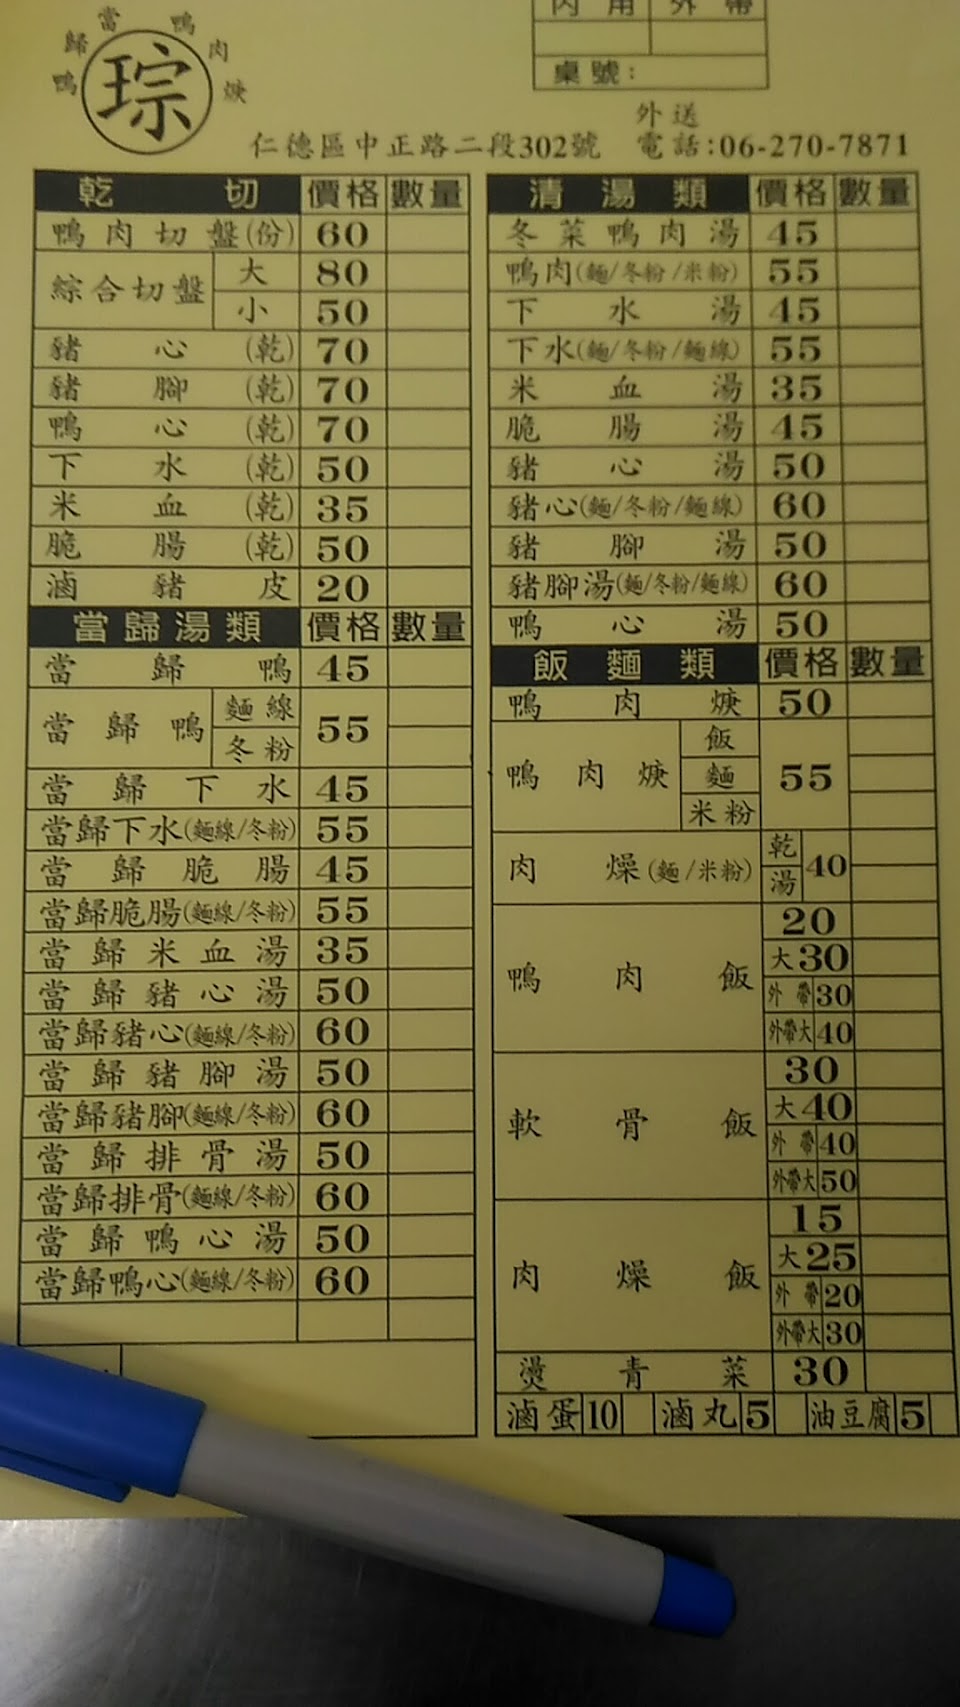 歸當鴨肉焿
鴨
琮
內用 外帶
桌號：
外送
仁德區中正路二段302號 電話:06-270-7871
乾切 價格 數量
鴨肉切盤(份) 60
綜合切盤 大 80
小 50
豬心(乾) 70
豬腳(乾) 70
鴨心(乾) 70
下水(乾) 50
米血(乾) 35
脆腸(乾) 50
滷豬皮 20
當歸湯類 價格 數量
當歸鴨 45
當歸鴨 麵線 冬粉 55
當歸下水 45
當歸下水(麵線/冬粉) 55
當歸脆腸 45
當歸脆腸(麵線/冬粉) 55
當歸米血湯 35
當歸豬心湯 50
當歸豬心(麵線/冬粉) 60
當歸豬腳湯 50
當歸豬腳(麵線/冬粉) 60
當歸排骨湯 50
當歸排骨(麵線/冬粉) 60
當歸鴨心湯 50
當歸鴨心(麵線/冬粉) 60
清湯類 價格 數量
冬菜鴨肉湯 45
鴨肉(麵/冬粉/米粉) 55
下水湯 45
下水(麵/冬粉/麵線) 55
米血湯 35
脆腸湯 45
豬心湯 50
豬心(麵/冬粉/麵線) 60
豬腳湯 50
豬腳湯(麵/冬粉/麵線) 60
鴨心湯 50
飯麵類 價格 數量
鴨肉焿 50
鴨肉焿 飯 麵 米粉 55
肉燥(麵/米粉) 乾 湯 40
鴨肉飯 20
大30
外帶30
外帶大40
軟骨飯 30
大40
外帶40
外帶大50
肉燥飯 15
大25
外帶20
外帶大30
燙青菜 30
滷蛋 10 滷丸 5 油豆腐 5